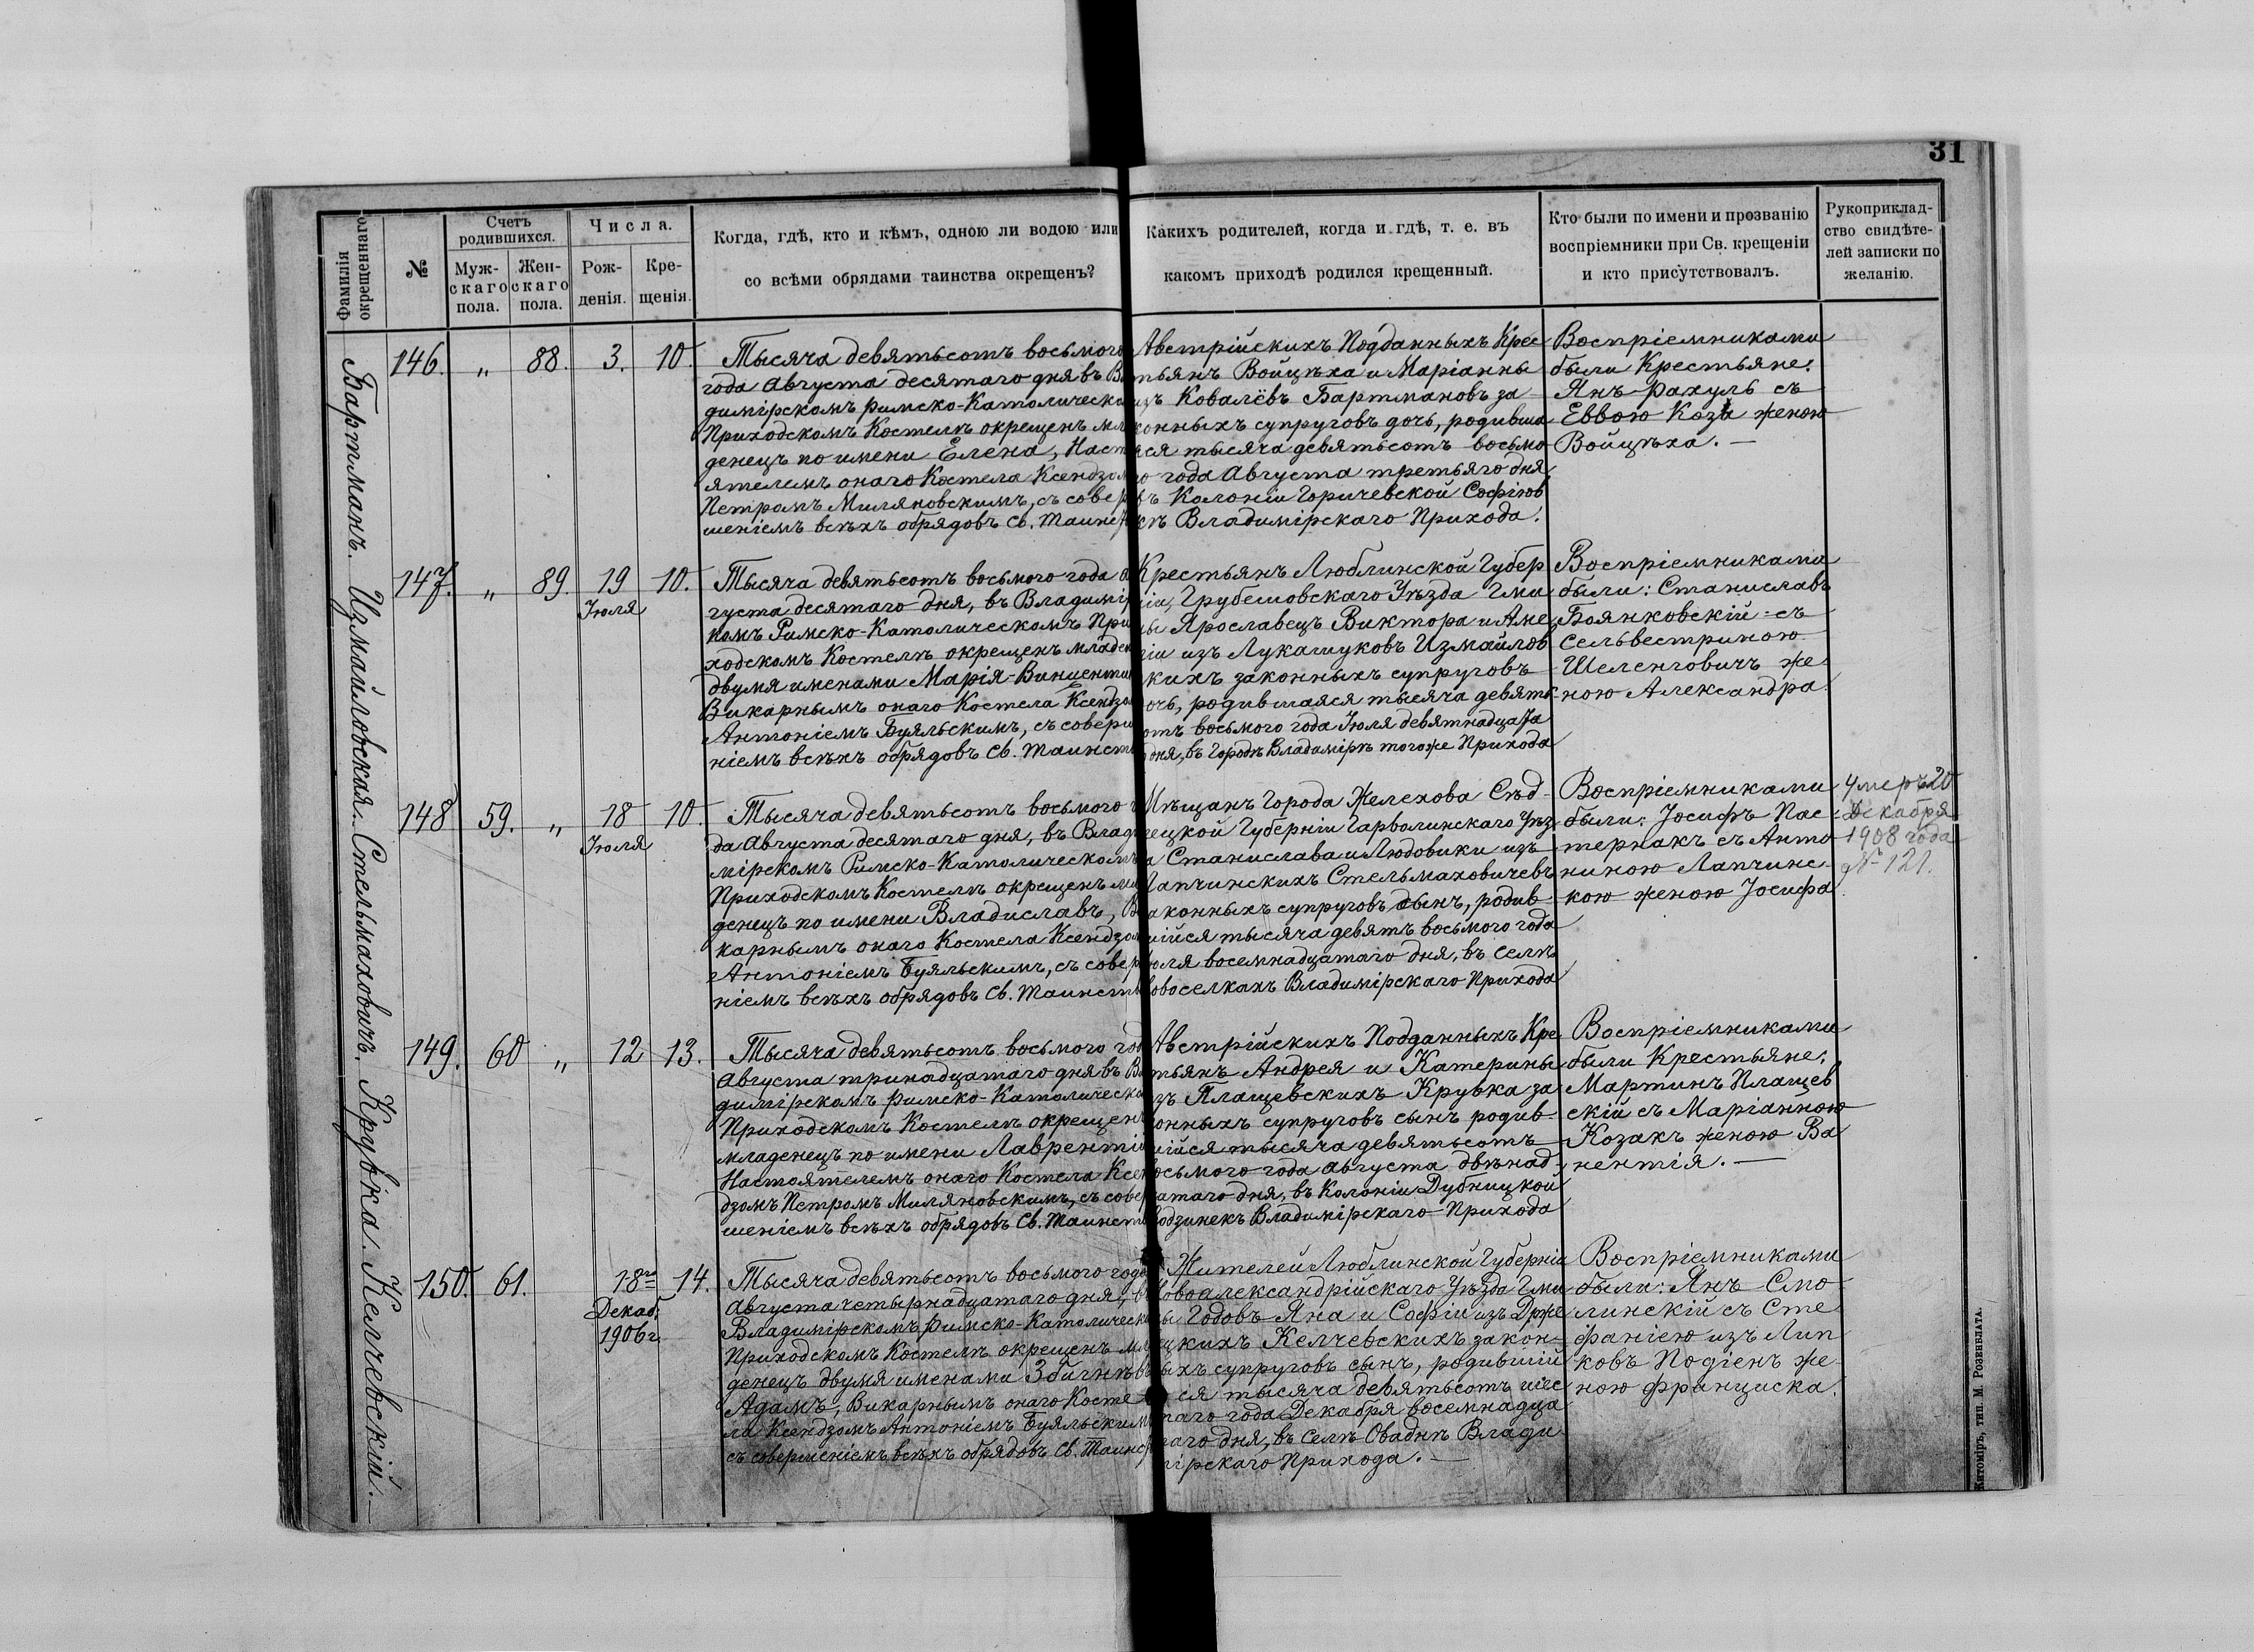 31
Фамилія
окрещеннаго
№
Счетъ
родившихся.
Муж-
скаго
пола.
Жен-
скаго
пола.
Числа.
Рож-
денія.
Кре-
щенія.
Когда, гдѣ, кто и кѣмъ, одною ли водою или
со всѣми обрядами таинства окрещенъ?
Какихъ родителей, когда и гдѣ, т. е. въ
какомъ приходѣ родился крещенный.
Кто были по имени и прозванію
воспріемники при Св. крещеніи
и кто присутствовалъ.
Рукоприклад-
ство свидѣте-
лей записки по
желанію.
Бартманъ.
146. „ 88. 3. 10.
Тысяча девятьсотъ восьмого
года августа десятаго дня въ Вла
димірскомъ римско-Католическо
Приходскомъ Костелѣ окрещенъ мла
денецъ по имени Елена, Наст
ятелемъ онаго Костела Ксендзом
Петромъ Миляновскимъ, съ совер
шеніемъ всѣхъ обрядовъ св. таинст
Австрійскихъ Подданныхъ Крес
тьянъ Войцѣха и Маріанны
изъ Ковалёвъ Бартмановъ за
конныхъ супруговъ дочь, родивша
яся тысяча девятьсотъ восьмо
го года Августа третьяго дня,
въ Колоніи Горичевской Софіюв
кѣ Владимірскаго Прихода.
Воспріемниками
были Крестьяне:
Янъ Рахуль съ
Еввою Коза женою
Войцѣха. —
Измайловская.
147. „ 89. 19 10.
Іюля
Тысяча девятьсотъ восьмого года а
густа десятаго дня, въ Владимір
комъ Римско-Католическомъ При
ходскомъ Костелѣ окрещенъ младен
двумя именами Марія-Винцентин
Викарнымъ онаго Костела Ксендзо
Антоніемъ Буяльскимъ, съ соверш
ніемъ всѣхъ обрядовъ св. таинств
Крестьянъ Люблинской Губер
ніи, Грубешовскаго Уѣзда Гми
ны Ярославецъ Виктора и Аме
ліи изъ Лукашуковъ Измайлов
скихъ законныхъ супруговъ
дочь, родившаяся тысяча девять
сотъ восьмого года Іюля девятнадцата
дня, въ городѣ Владимірѣ тогоже Прихода
Воспріемниками
были: Станиславъ
Боянковскій съ
Сельвестриною
Шеленговичъ же
ною Александра.
Стельмаховичъ.
148 59. „ 18 10.
Іюля
Тысяча девятьсотъ восьмого г
да Августа десятаго дня, въ Влади
мірскомъ Римско-Католическомъ
Приходскомъ Костелѣ окрещенъ мла
денецъ по имени Владиславъ, Ви
карнымъ онаго Костела Ксендзом
Антоніемъ Буяльскимъ, съ совер
ніемъ всѣхъ обрядовъ св. таинств
Мѣщанъ Города Желехова Сѣд-
лецкой Губерніи Гарволинскаго Уѣз
да Станислава и Людовики изъ
Лапчинскихъ Стельмаховичевъ
законныхъ супруговъ сынъ, родив-
шійся тысяча девять восьмого года
Іюля восемнадцатаго дня, въ селѣ
Новоселкахъ Владимірскаго Прихода
Воспріемниками
были: Іосифъ Пас
тернакъ съ Анто
ниною Лапчинс-
кою женою Іосифа.
Умеръ 20
Декабря
1908 года
№ 121.
Крувка.
149. 60 „ 12 13.
Тысяча девятьсотъ восьмого год
Августа тринадцатаго дня въ Вла
димірскомъ римско-Католическо
Приходскомъ Костелѣ окрещенъ
младенецъ по имени Лаврентій
Настоятелемъ онаго Костела Ксен
дзомъ Петромъ Миляновскимъ, съ совер
шеніемъ всѣхъ обрядовъ св. таинств
Австрійскихъ Подданныхъ Кре
стьянъ Андрея и Катерины
изъ Плащевскихъ Крувка за
конныхъ супруговъ сынъ родив-
шійся тысяча девятьсотъ
восьмого года августа двѣнад
цатаго дня, въ Колоніи Дубницкой
Владимірскаго Прихода
Воспріемниками
были Крестьяне:
Мартинъ Плащев
скій съ Маріанною
Козакъ женою Ва
лентія. —
Келчевскій. —
150. 61. 18го 14.
Декаб.
1906 г.
Тысяча девятьсотъ восьмого года
Августа четырнадцатаго дня, въ
Владимірскомъ Римско-Католическо
Приходскомъ Костелѣ окрещенъ мла
денецъ двумя именами Збигнѣвъ
Адамъ, Викарнымъ онаго Косте
ла Ксендзомъ Антоніемъ Буяльским
съ совершеніемъ всѣхъ обрядовъ св. Таинст
Жителей Люблинской Губерніи
Новоалександрійскаго Уѣзда Гми
ны Годовъ Яна и Софіи изъ Држе
вецкихъ Келчевскихъ закон-
ныхъ супруговъ сынъ, родившій
ся тысяча девятьсотъ шес
таго года Декабря восемнадца
таго дня, въ селѣ Оваднѣ Влади
мірскаго Прихода. —
Воспріемниками
были: Янъ Смо
линскій съ Сте
фаніею изъ Лип
ковъ Подіенъ же
ною Франциска.
Житоміръ, тип. М. Розенблата.